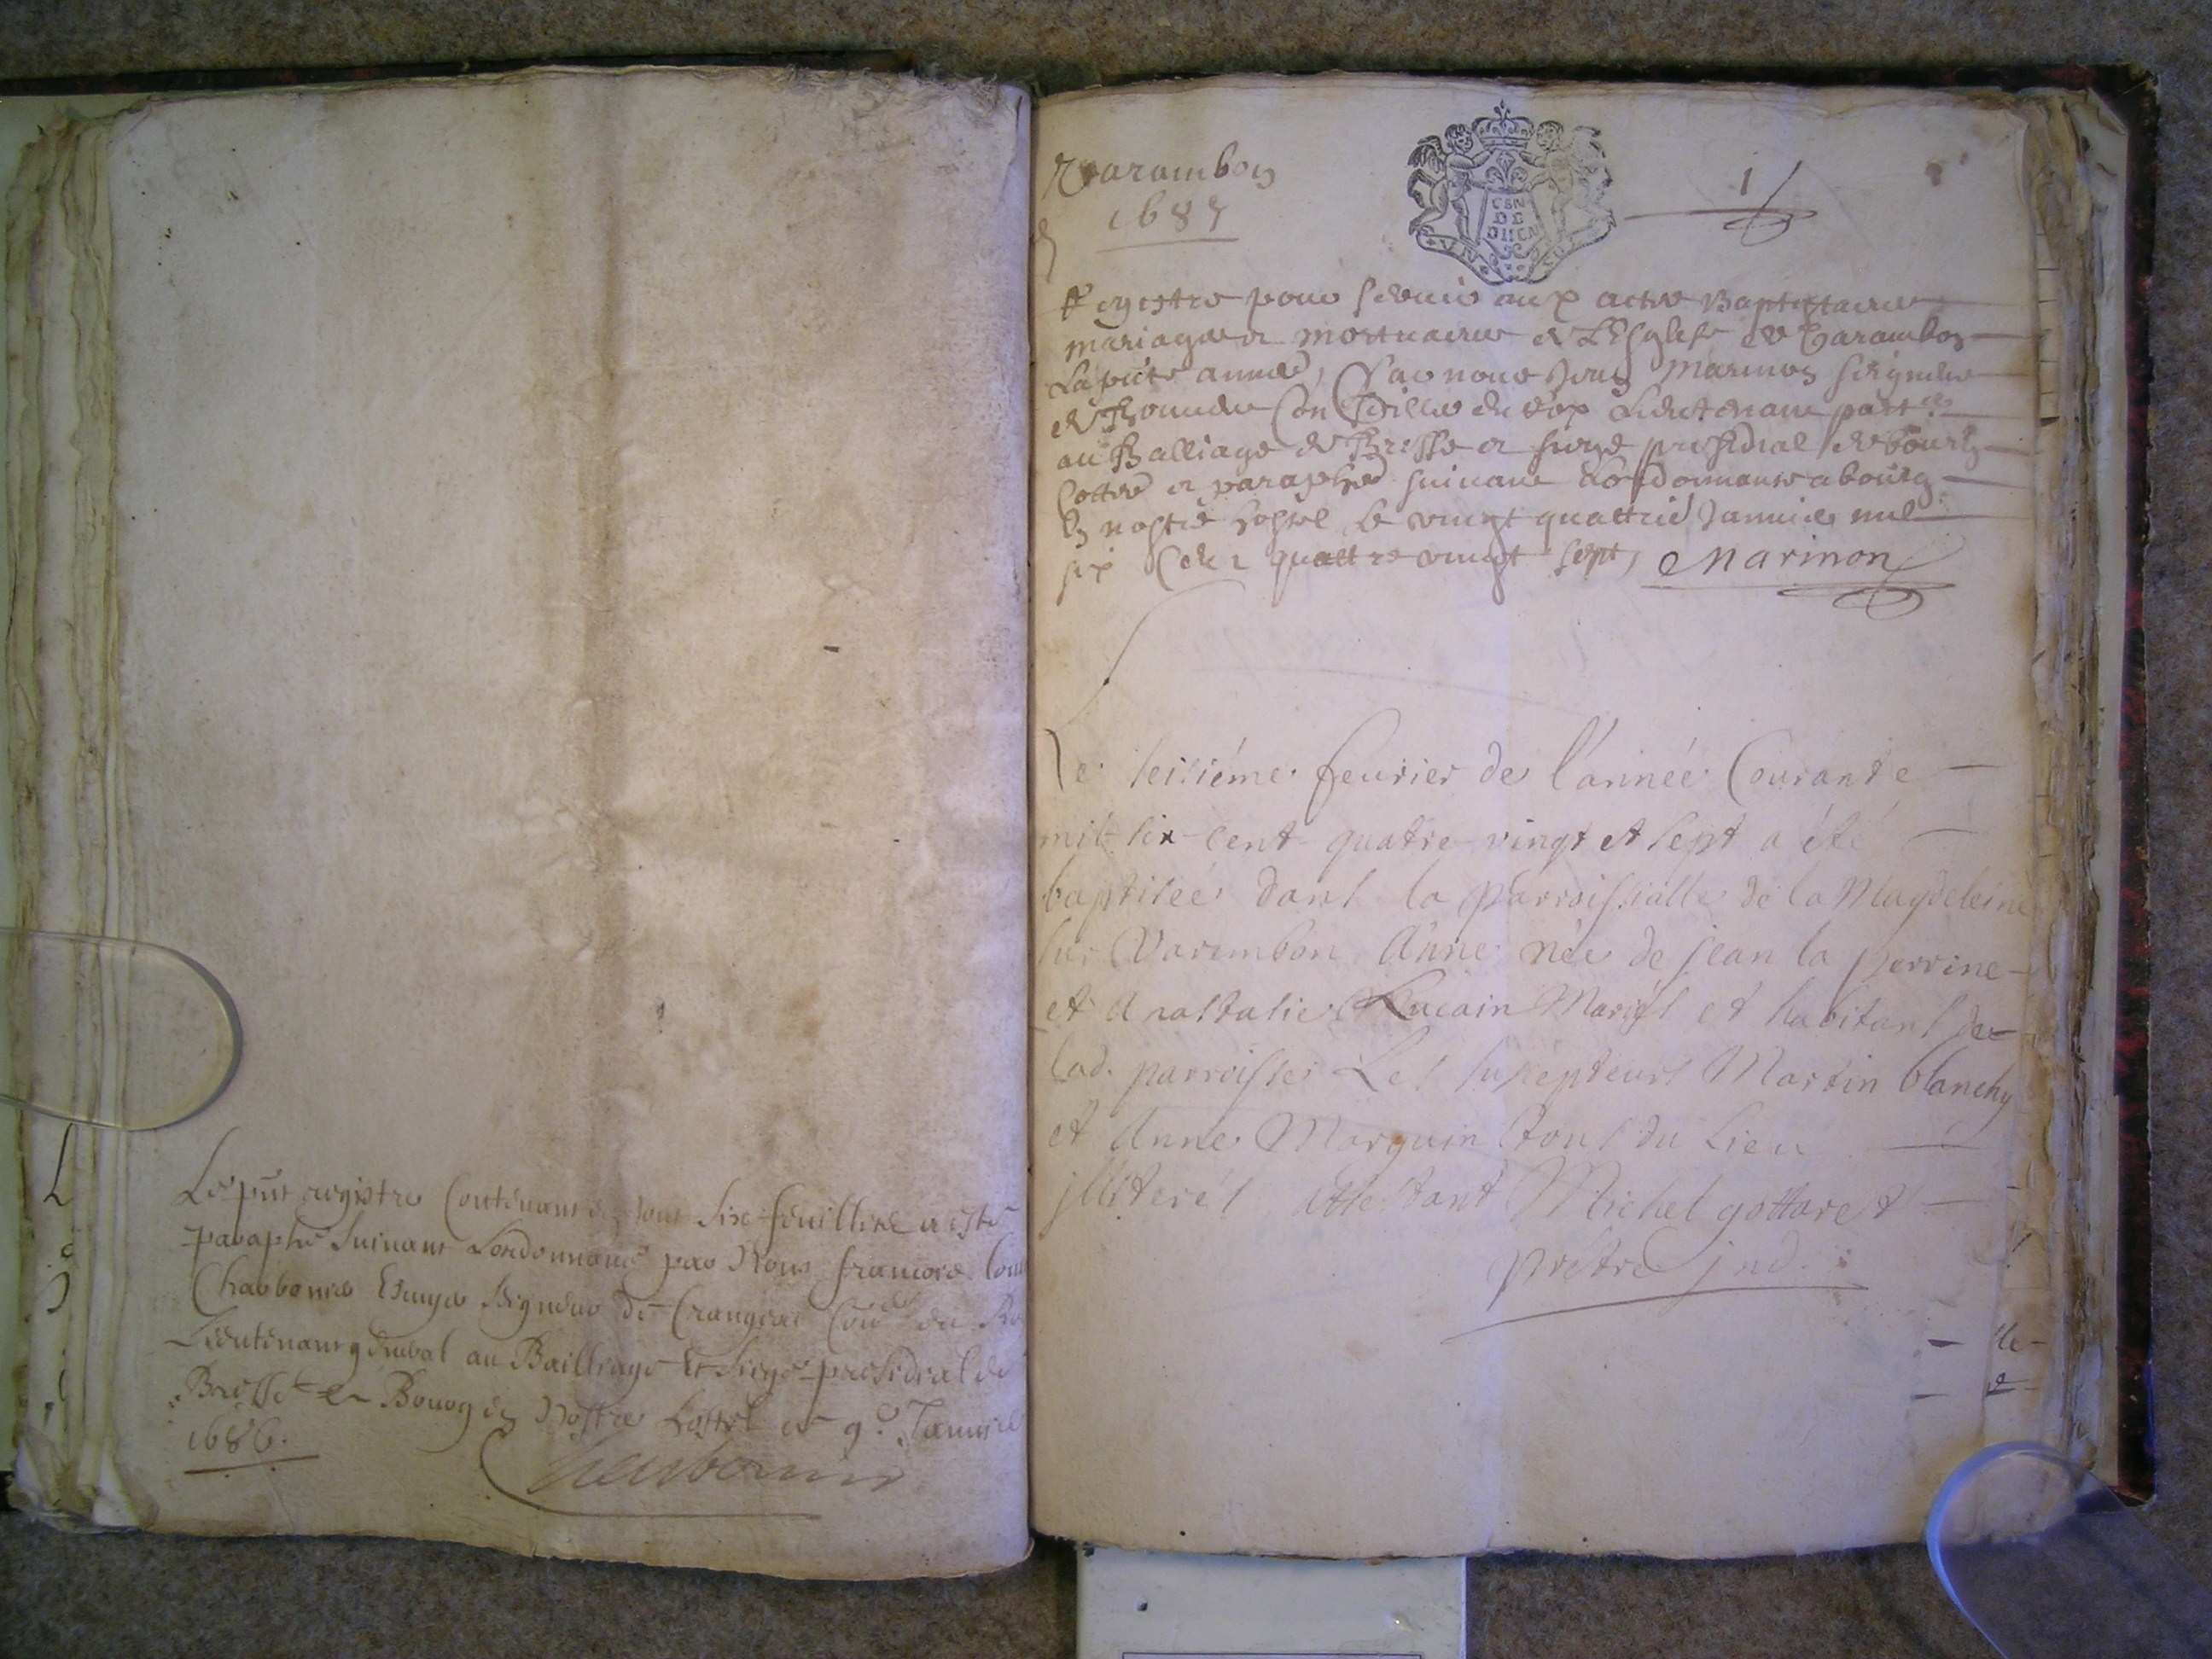 Le pnt registre Contenant en tout six feuillets a esté
paraphé suivant Lordonnance par Nous francois
Charbonnier Escuyer Seigneur de Crangeac Con.er du Roy
Lieutenant general au Bailliage et siege presidial de
Bresse et Bourg en Nostre hostel ce 9.e Janvier
1686.
Charbonnier
Varambon
1687
1
CEN
DE
DIICN
Registre pour servir aux actes Baptistaires
mariages et mortuaires de LEsglise de Varambon
La pnte année, par nous Marinon seigneur
de Con.er du Roy Lieutenant part.er
au Balliage de Bresse et siege presidial de bourg
Cotté et paraphé suivant Lordonnance a bourg
En nostre hostel le vingt quattrie Janvier mil
six Cens quattre vingt sept, Marinon
le seisiéme feurier de l'année Courante
mil six cent quatre vingt et sept a été
baptisée dans la parroissialle de la Magdeleine
sur Varembon Anne née de jean la perrine
et Anastasie Lucain Mariés et habitans de
lad. parroisse Les suscepteurs Martin blanchy
et Anne Marguin tous du Lieu
jlliterés attestant Michel gottaret
prêtre jnd.